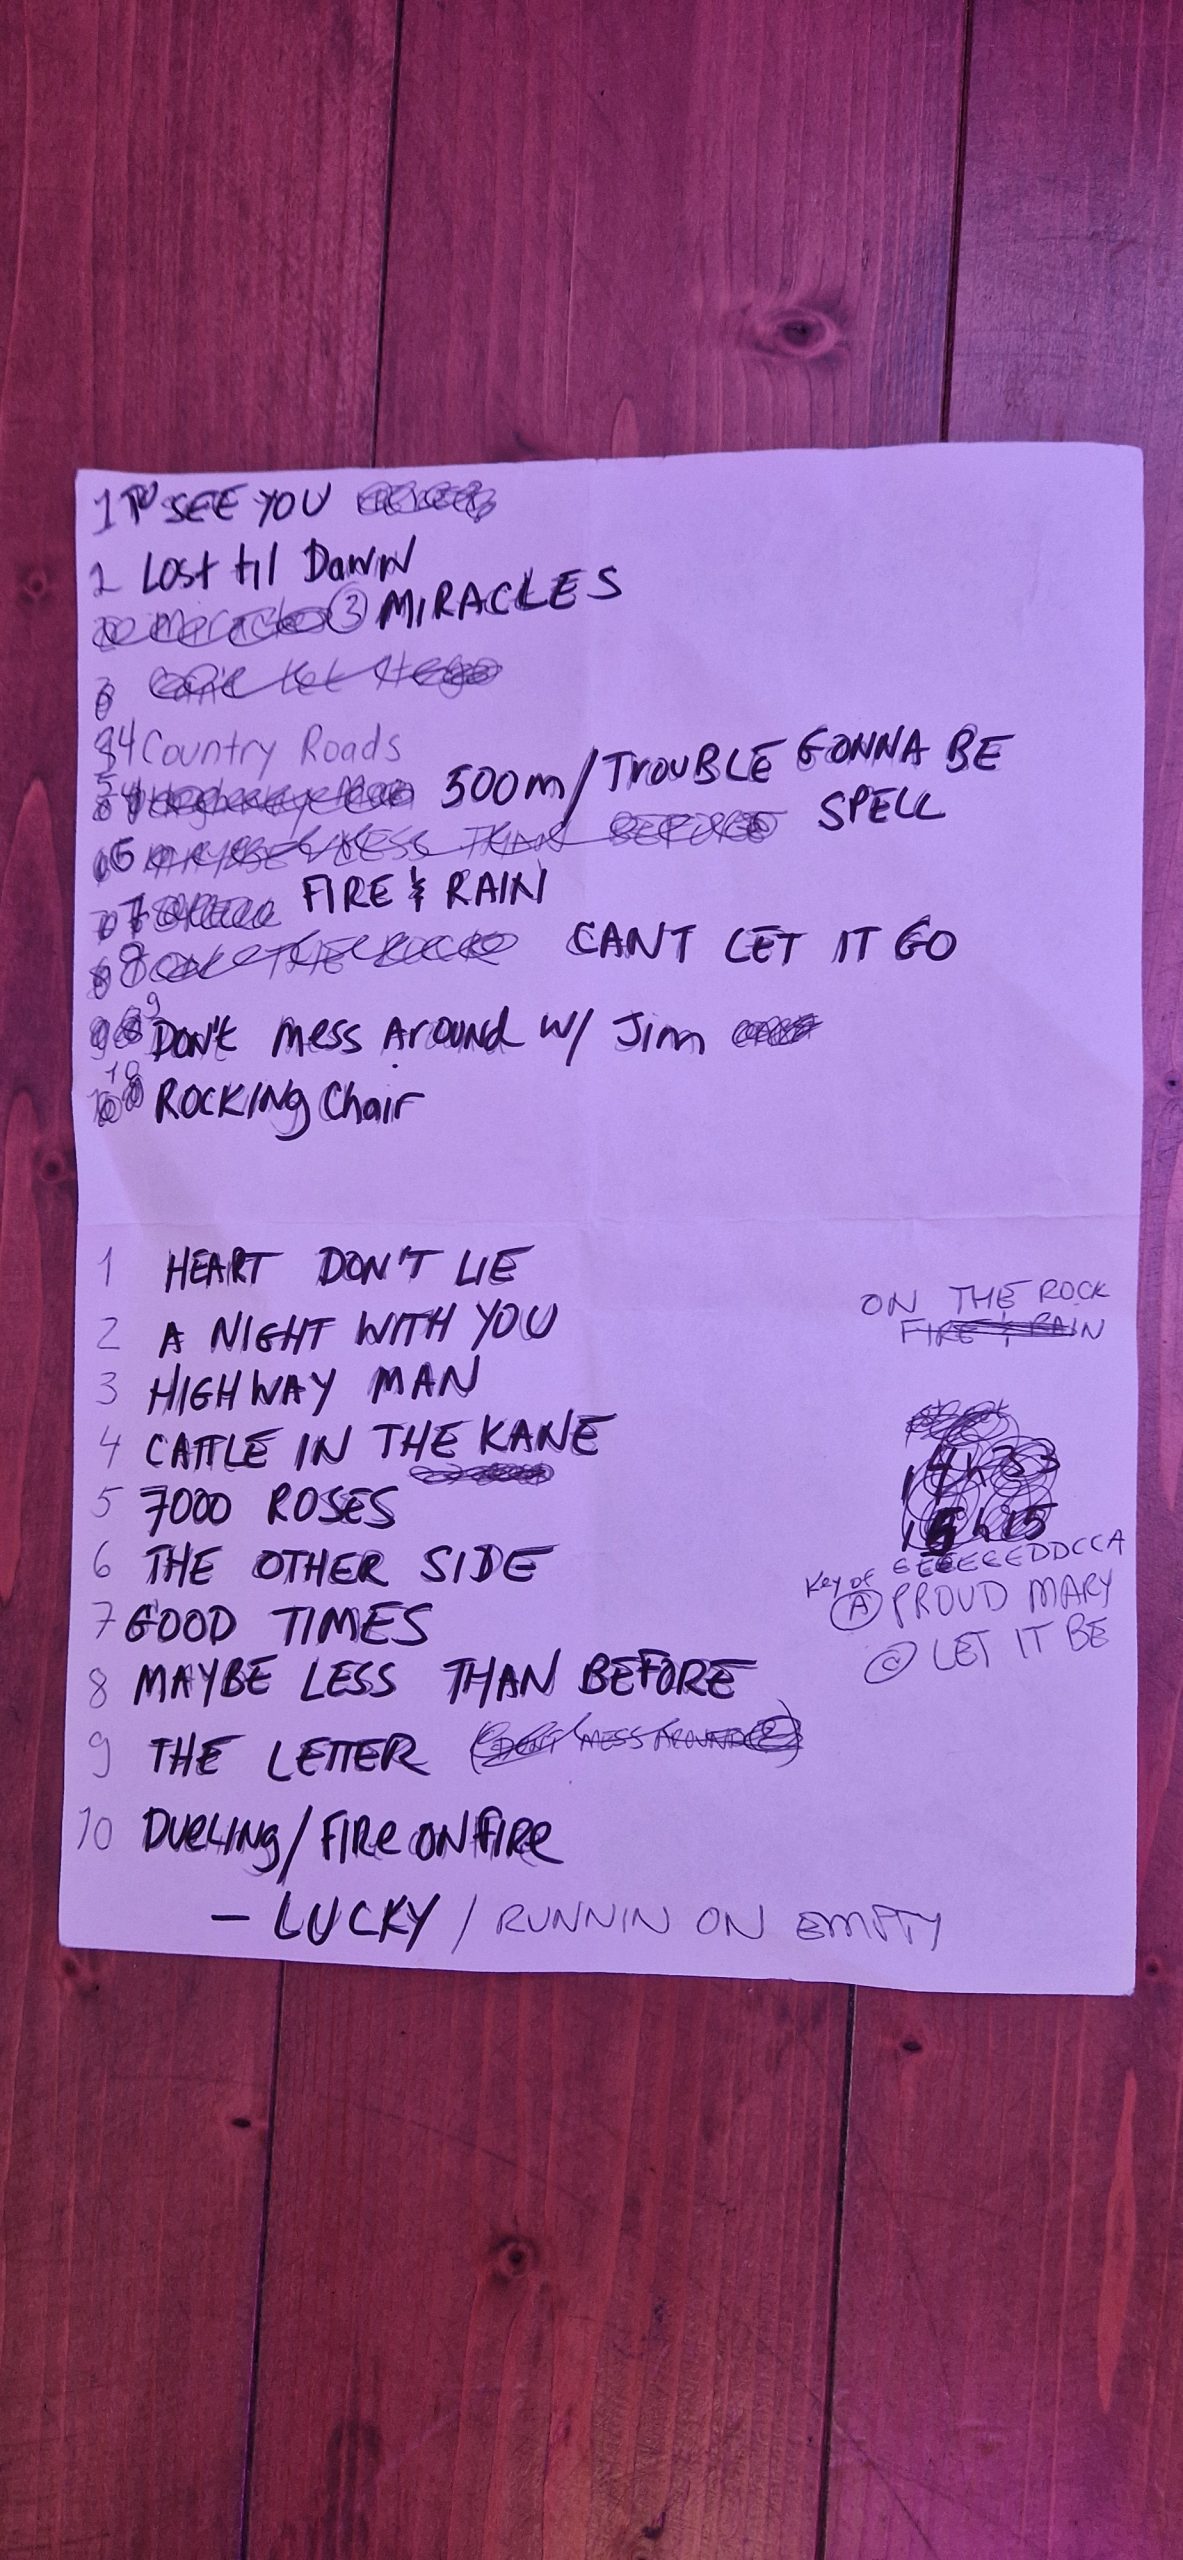 1 TO SEE YOU
2 Lost til Dawn
③ MIRACLES
Can't Let It go
4 Country Roads
5 500m/TROUBLE GONNA BE
6 MAYBE LESS THAN BEFORE SPELL
7 FIRE & RAIN
8 ON THE ROCK CANT LET IT GO
9 DON'T mess Around w/ Jim
10 ROCKINg Chair
1 HEART DON'T LIE
2 A NIGHT WITH YOU
3 HIGHWAY MAN
4 CATTLE IN THE KANE
5 7000 ROSES
6 THE OTHER SIDE
7 GOOD TIMES
8 MAYBE LESS THAN BEFORE
9 THE LETTER (DON'T MESS AROUND)
10 DUELINg/FIRE ON FIRE
— LUCKY / RUNNIN ON EMPTY
ON THE ROCK
FIRE & RAIN
15h15
EEEEEEDDCCA
Key of Ⓐ PROUD MARY
Ⓒ LET IT BE